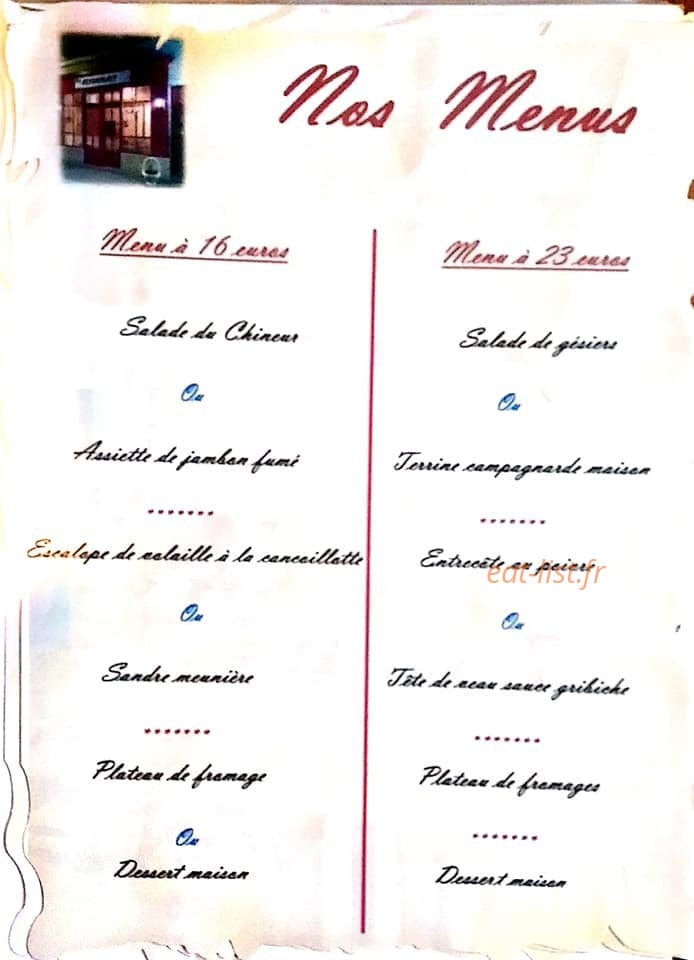 Nos Menus
Menu à 16 euros
Salade du Chineur
Ou
Assiette de jambon fumé
.......
Escalope de volaille à la cancoillotte
Ou
Sandre meunière
.......
Plateau de fromage
Ou
Dessert maison
Menu à 23 euros
Salade de gésiers
Ou
Terrine campagnarde maison
.......
Entrecôte au poivre
eat-list.fr
Ou
Tête de veau sauce gribiche
.......
Plateau de fromages
.......
Dessert maison